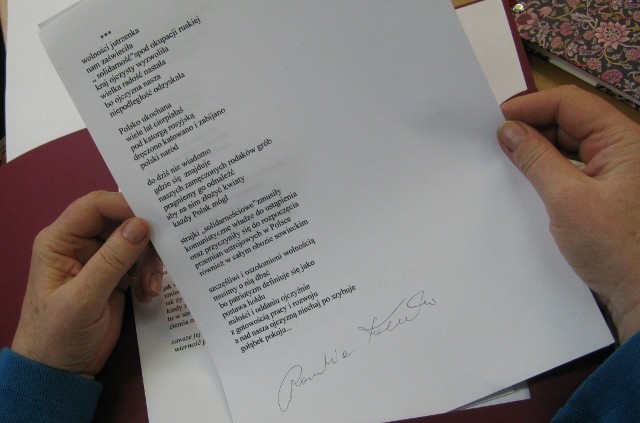 ***
wolności jutrzenka
nam zaświeciła
„ solidarność”spod okupacji ruskiej
kraj ojczysty wyzwoliła
wielka radość nastała
bo ojczyzna nasza
niepodległość odzyskała
Polsko ukochana
wiele lat cierpiałaś
pod katorgą rosyjską
dręczono katowano i zabijano
polski naród
do dziś nie wiadomo
gdzie się znajduje
naszych zamęczonych rodaków grób
pragniemy go odnaleźć
aby na nim złożyć kwiaty
każdy Polak mógł
strajki „solidarnościowe”zmusiły
komunistyczne władze do ustąpienia
oraz przyczyniły się do rozpoczęcia
przemian ustrojowych w Polsce
również w całym obozie sowieckim
szczęśliwi i oszołomieni wolnością
musimy o nią dbać
bo patriotyzm definiuje się jako
postawa hołdu
miłości i oddaniu ojczyźnie
z gotowością pracy i rozwoju
a nad nasza ojczyzną niechaj po szybuje
gołąbek pokoju...
zawsze jej
wierność p